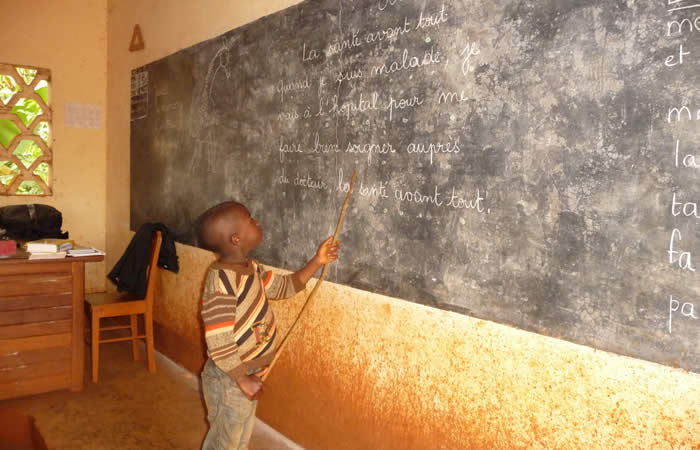 La santé avant tout
quand je suis malade, je
vais à l'hôpital pour me
faire bien soigner auprès
du docteur. la santé avant tout.
me
et
m
la
ta
fa
pa